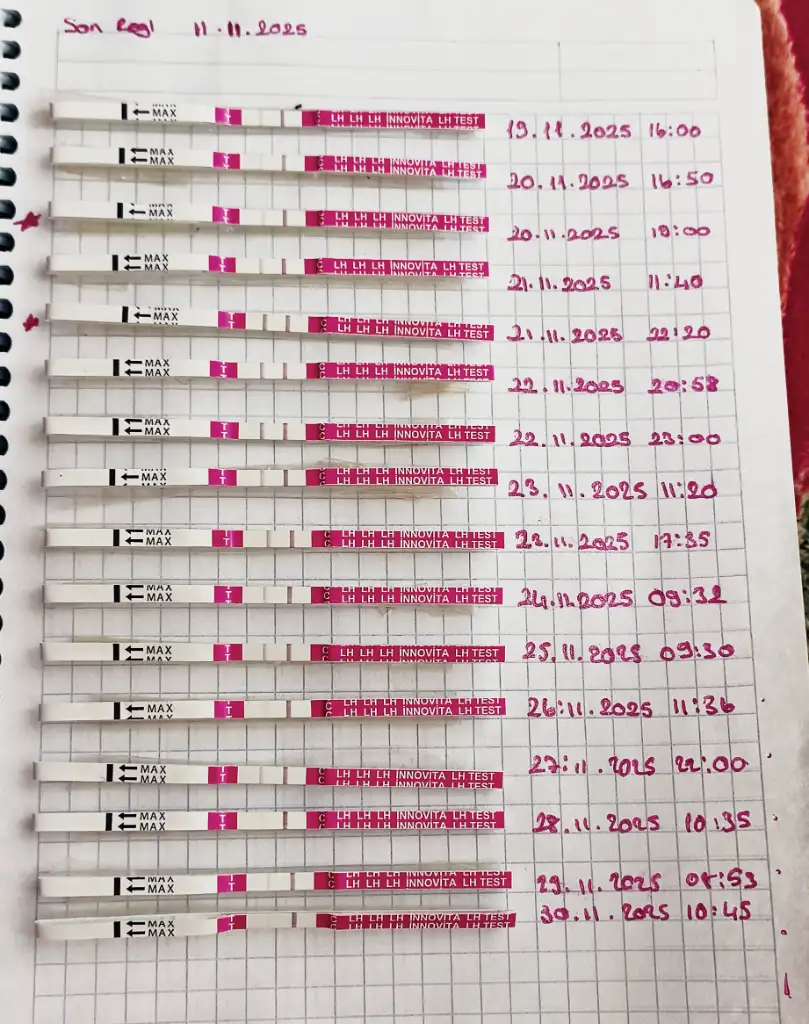 Son Regl 11.11.2025
MAX LH LH LH İNNOVİTA LH TEST 19.11.2025 16:00
MAX MAX LH LH LH İNNOVİTA LH TEST 20.11.2025 16:50
MAX LH LH LH İNNOVİTA LH TEST 20.11.2025 19:00
MAX MAX LH LH LH İNNOVİTA LH TEST 21.11.2025 11:40
MAX LH LH LH İNNOVİTA LH TEST 21.11.2025 22:20
MAX MAX LH LH LH İNNOVİTA LH TEST 22.11.2025 20:58
MAX MAX LH LH LH İNNOVİTA LH TEST 22.11.2025 23:00
MAX LH LH LH İNNOVİTA LH TEST 23.11.2025 11:20
MAX MAX LH LH LH İNNOVİTA LH TEST 23.11.2025 17:35
MAX MAX LH LH LH İNNOVİTA LH TEST 24.11.2025 09:32
MAX MAX LH LH LH İNNOVİTA LH TEST 25.11.2025 09:30
MAX MAX LH LH LH İNNOVİTA LH TEST 26:11.2025 11:36
MAX MAX LH LH LH İNNOVİTA LH TEST 27:11.2025 22:00
MAX MAX LH LH LH İNNOVİTA LH TEST 28.11.2025 10:35
MAX MAX LH LH LH İNNOVİTA LH TEST 29.11.2025 08:53
MAX MAX LH LH LH İNNOVİTA LH TEST 30.11.2025 10:45